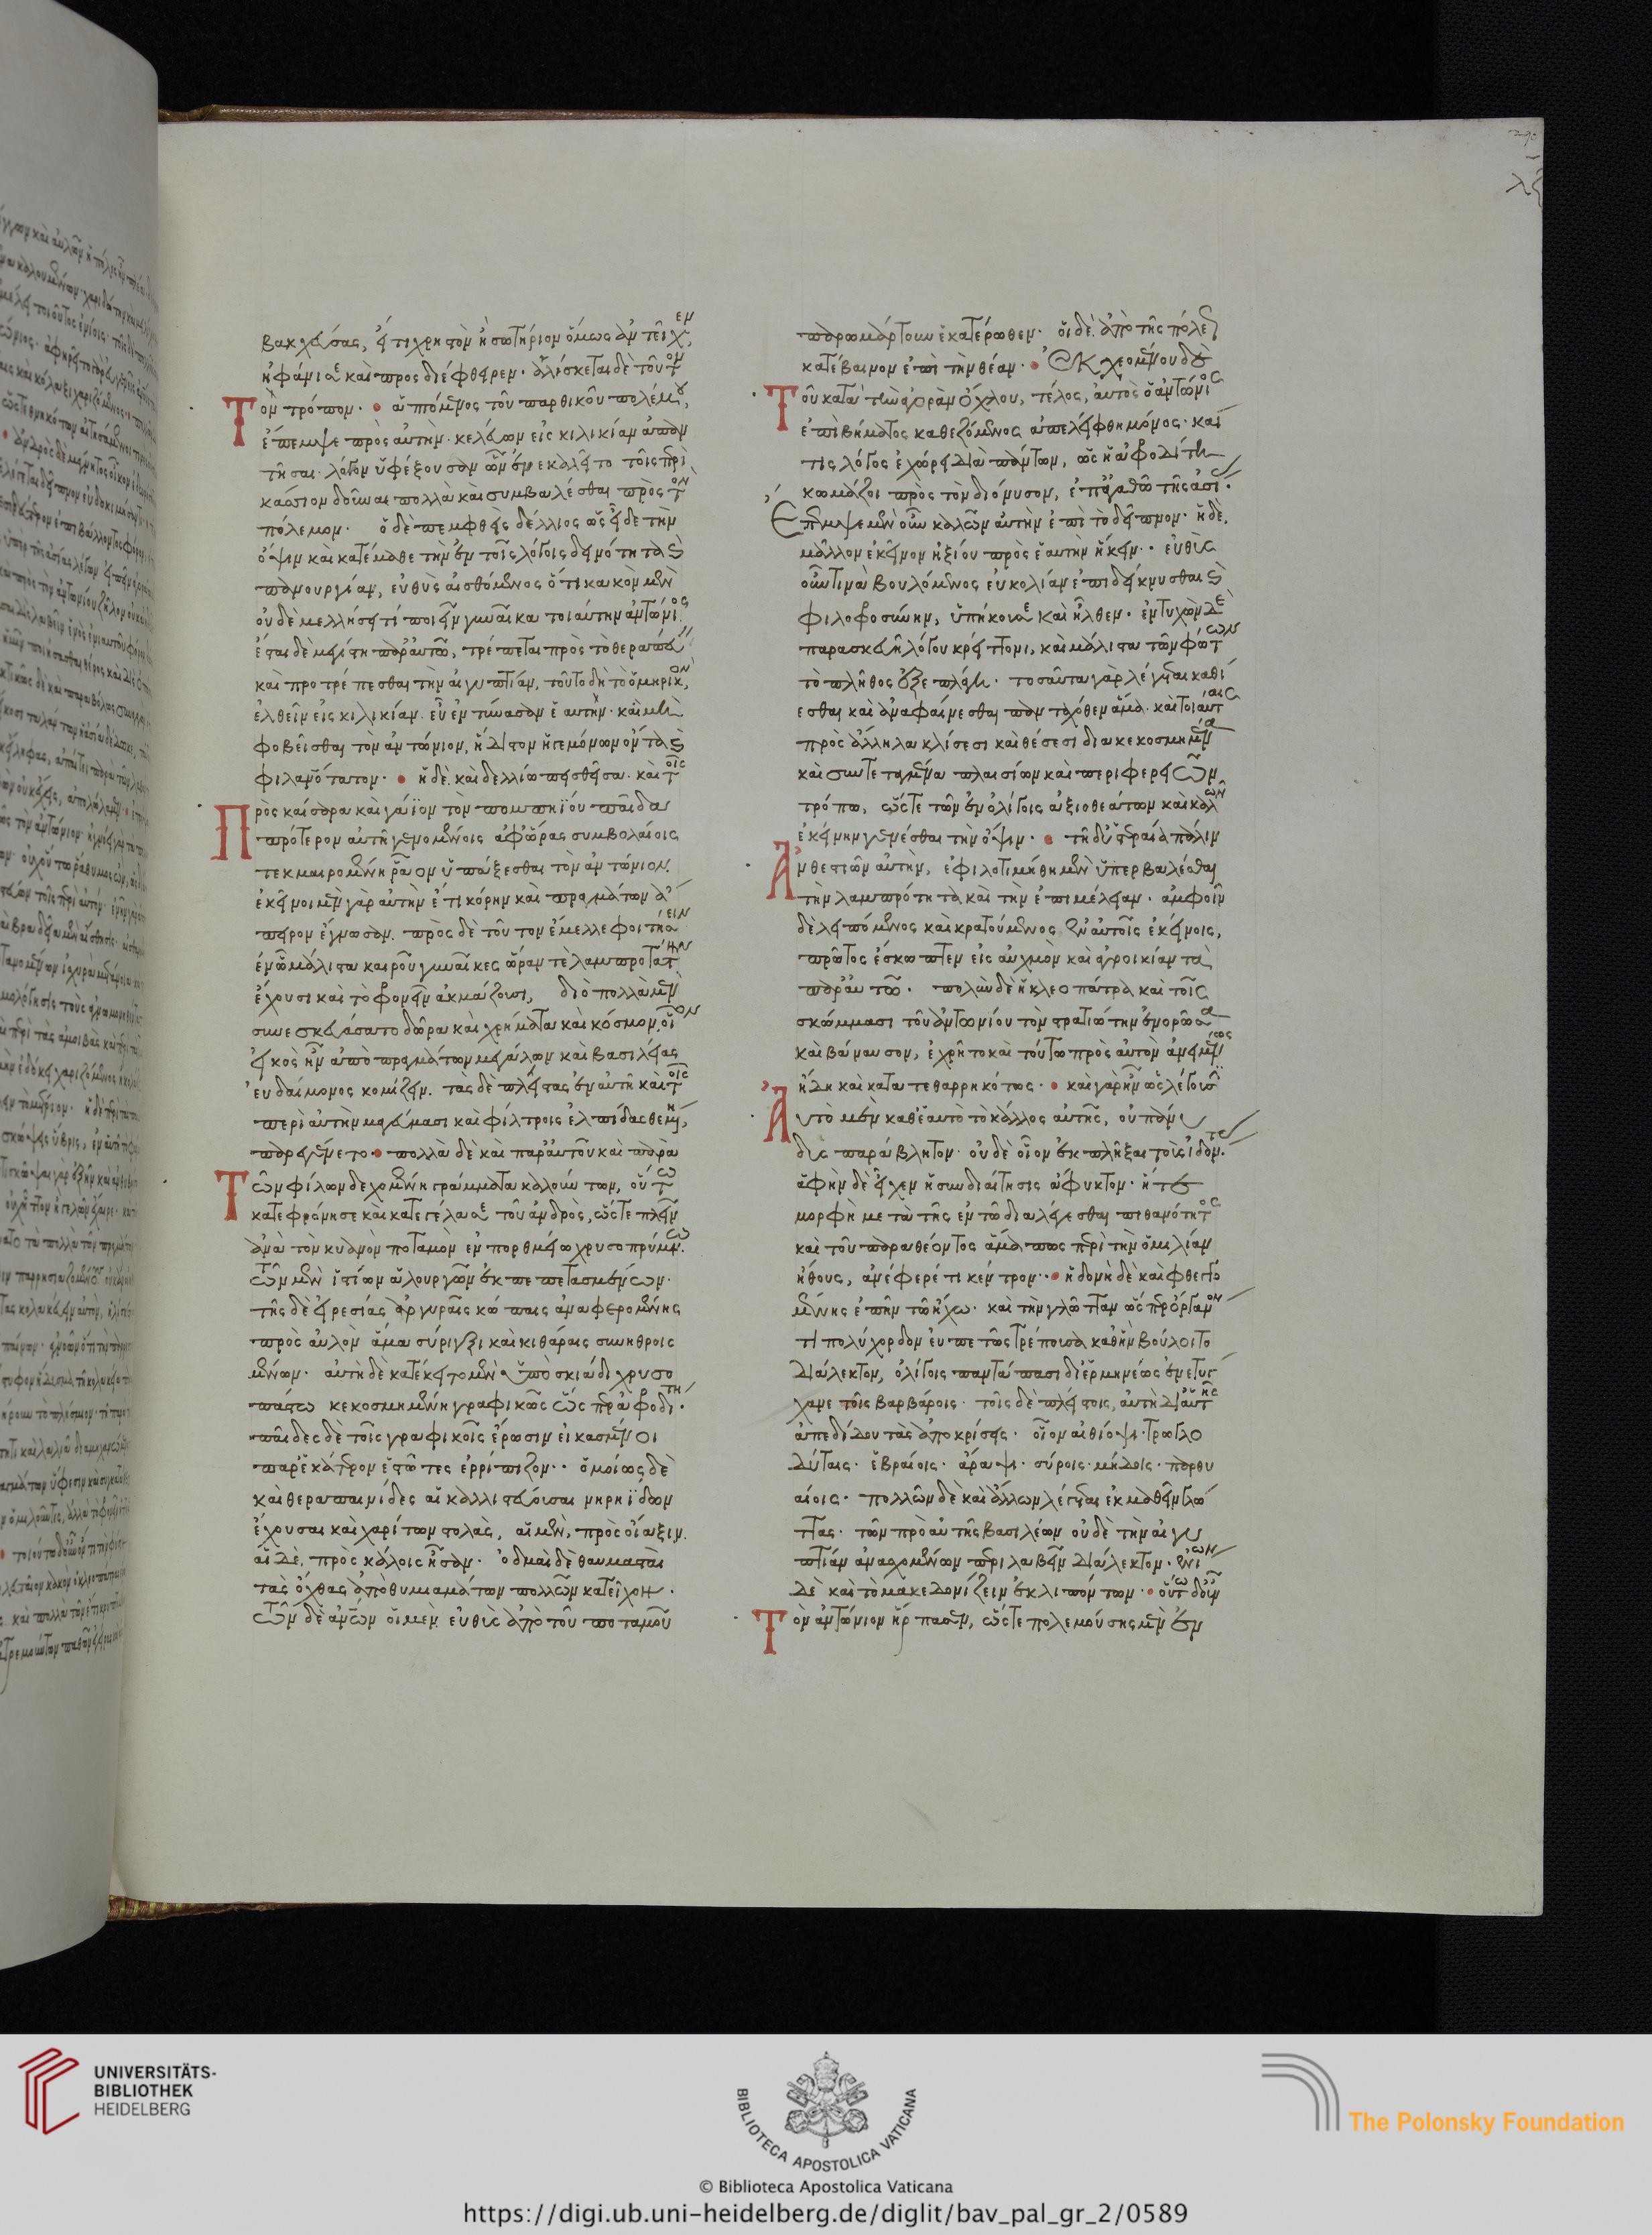 βακχεύσας, εἴ τι χρηστὸν ἢ σωτήριον ὅμως ἀντεῖχεν,
ἠφάνισε καὶ προσδιέφθειρεν· ἁλίσκεται δὲ τοῦτον
Τὸν τρόπον· ἁπτόμενος τοῦ παρθικοῦ πολέμου,
ἔπεμψε πρὸς αὐτὴν· κελεύων εἰς κιλικίαν ἀπαν
τῆσαι· λόγον ὑφέξουσαν ὧν ἐνεκαλεῖτο τοῖς περὶ
κάσσιον δοῦναι πολλὰ καὶ συμβαλέσθαι πρὸς τὸν
πόλεμον· ὁ δὲ πεμφθεὶς δέλλιος ὡς εἶδε τὴν
ὄψιν καὶ κατέμαθε τὴν ἐν τοῖς λόγοις δεινότητα καὶ
πανουργίαν, εὐθὺς αἰσθόμενος ὅτι κακὸν μὲν
οὐδὲ μελλήσει τί ποιεῖν γυναῖκα τοιαύτην ἀντώνιος
ἔσται δὲ μεγίστη παρ' αὐτῶ, τρέπεται πρὸς τὸ θεραπεύειν
καὶ προτρέπεσθαι τὴν αἰγυπτίαν, τοῦτο δὴ τὸ ὁμηρικὸν,
ἐλθεῖν εἰς κιλικίαν εὖ ἐντύνασαν ἑαυτήν· καὶ μὴ
φοβεῖσθαι τὸν ἀντώνιον, ἥδιστον ἡγεμόνων ὄντα καὶ
φιλανότατον· ἡ δὲ καὶ δελλίω πεισθεῖσα· καὶ τοῖς
Πρὸς καίσαρα καὶ γάϊον τὸν πομπηΐου παῖδα
πρότερον αὐτῆ γενομένοις ἀφ' ὥρας συμβολαίοις
τεκμαιρομένη ῥᾶον ὑπάξεσθαι τὸν ἀντώνιον.
ἐκεῖνοι μὲν γὰρ αὐτὴν ἔτι κόρην καὶ πραγμάτων ἄ
πειρον ἔγνωσαν. πρὸς δὲ τοῦτον ἔμελλε φοιτήσειν
ἐν ὧ μάλιστα καιροῦ γυναῖκες ὥραν τὲ λαμπροτάτην
ἔχουσι καὶ τὸ φρονεῖν ἀκμάζουσι, διὸ πολλὰ μὲν
συνεσκευάσατο δῶρα καὶ χρήματα καὶ κόσμον, οἷον
εἰκὸς ἦν ἀπὸ πραγμάτων μεγάλων καὶ βασιλείας
εὐδαίμονος κομίζειν. τὰς δὲ πλείστας ἐν αὐτῆ καὶ τοῖς
περὶ αὐτὴν μαγεύμασι καὶ φίλτροις ἐλπίδας θεμένη,
παρεγένετο· πολλὰ δὲ καὶ παρ' αὐτοῦ καὶ παρὰ
Τῶν φίλων δεχομένη γράμματα καλούντων, οὕτω
κατεφρόνησε καὶ κατεγέλασε τοῦ ἀνδρὸς, ὥστε πλεῖν
ἀνὰ τὸν κυδνὸν ποταμὸν ἐν πορθμείω χρυσοπρύμνω.
τῶν μὲν ἱστίων ἁλουργῶν ἐκπεπετασμένων·
τῆς δὲ εἰρεσίας ἀργυραῖς κώπαις ἀναφερομένης
πρὸς αὐλὸν ἅμα σύριγξι καὶ κιθάραις συνηρμοσ
μένων· αὐτὴ δὲ κατέκειτο μὲν ὑπὸ σκιάδι χρυσο
πάστω κεκοσμημένη γραφικῶς ὥσπερ ἀφροδίτη·
παῖδες δὲ τοῖς γραφικοῖς ἔρωσιν εἰκασμένοι
παρ' ἑκάτερον ἑστῶτες ἐρρίπιζον· ὁμοίως δὲ
καὶ θεραπαινίδες αἱ καλλιστεύουσαι νηρηΐδων
ἔχουσαι καὶ χαρίτων στολὰς, αἱ μὲν, πρὸς οἴαξιν.
αἱ δὲ, πρὸς κάλοις ἦσαν· ὀδμαὶ δὲ θαυμασταὶ
τὰς ὄχθας ἀπὸ θυμιαμάτων πολλῶν κατεῖχον.
τῶν δὲ ἀνθρώπων οἱ μὲν εὐθὺς ἀπὸ τοῦ ποταμοῦ
παρωμάρτουν ἑκατέρωθεν· οἱ δὲ ἀπὸ τῆς πόλεως
κατέβαινον ἐπὶ τὴν θέαν· Ἐκχεομένου δὲ
Τοῦ κατὰ τὴν ἀγορὰν ὄχλου, τέλος, αὐτὸς ὁ ἀντώνιος
ἐπὶ βήματος καθεζόμενος ἀπελείφθη μόνος· καί
τις λόγος ἐχώρει διὰ πάντων, ὡς ἡ ἀφροδίτη
κωμάζοι πρὸς τὸν διόνυσον, ἐπ' ἀγαθῶ τῆς ἀσίας·
Ἔπεμψε μὲν οὖν καλῶν αὐτὴν ἐπὶ τὸ δεῖπνον· ἡ δὲ,
μᾶλλον ἐκεῖνον ἠξίου πρὸς ἑαυτὴν ἥκειν· εὐθὺς
οὖν τινὰ βουλόμενος εὐκολίαν ἐπιδείκνυσθαι καὶ
φιλοφροσύνην, ὑπήκουσε καὶ ἦλθεν· ἐντυχὼν δὲ
παρασκευῆ λόγου κρείττονι, καὶ μάλιστα τῶν φώτων
τὸ πλῆθος ἐξεπλάγη. τοσαῦτα γὰρ λέγεται καθί
εσθαι καὶ ἀναφαίνεσθαι πανταχόθεν ἅμα· καὶ τοιαύταις
πρὸς ἄλληλα κλίσεσι καὶ θέσεσι διακεκοσμημένα
καὶ συντεταγμένα πλαισίων καὶ περιφερειῶν
τρόπω, ὥστε τῶν ἐν ὀλίγοις ἀξιοθεάτων καὶ καλῶν
ἐκείνην γενέσθαι τὴν ὄψιν· τῆ δ' ὑστεραία πάλιν
Ἀνθεστιῶν αὐτὴν, ἐφιλοτιμήθη μὲν ὑπερβαλέσθαι
τὴν λαμπρότητα καὶ τὴν ἐπιμέλειαν· ἀμφοῖν
δὲ λειπόμενος καὶ κρατούμενος ἐν αὐτοῖς ἐκείνοις,
πρῶτος ἔσκωπτεν εἰς αὐχμὸν καὶ ἀγροικίαν τὰ
παρ' αὐτοῦ. πολὺν δὲ ἡ κλεοπάτρα καὶ τοῖς
σκώμμασι τοῦ ἀντωνίου τὸν στρατιώτην ἐνορῶσα
καὶ βάναυσον, ἐχρῆτο καὶ τούτω πρὸς αὐτὸν ἀνειμένως
ἤδη καὶ κατατεθαρρηκότως· καὶ γὰρ ἦν ὡς λέγουσιν
Αὐτὸ μὲν καθ' ἑαυτὸ τὸ κάλλος αὐτῆς, οὐ πάνυ
δυσπαράβλητον· οὐδὲ οἷον ἐκπλῆξαι τοὺς ἰδόντας·
ἁφὴν δὲ εἶχεν ἡ συνδιαίτησις ἄφυκτον· ἥ τε
μορφὴ μετὰ τῆς ἐν τῶ διαλέγεσθαι πιθανότητος
καὶ τοῦ παραθέοντος ἅμα πως περὶ τὴν ὁμιλίαν
ἤθους, ἀνέφερέ τι κέντρον· ἡδονὴ δὲ καὶ φθεγγο
μένης ἐπῆν τῶ ἤχω· καὶ τὴν γλῶτταν ὥσπερ ὄργανόν
τι πολύχορδον εὐπετῶς τρέπουσα καθ' ἣν βούλοιτο
διάλεκτον, ὀλίγοις παντάπασι δι' ἑρμηνέως ἐνετύγ
χανε τοῖς βαρβάροις· τοῖς δὲ πλείστοις, αὐτὴ δι' αὑτῆς
ἀπεδίδου τὰς ἀποκρίσεις· οἷον αἰθίοψι· τρωγλο
δύταις· ἑβραίοις· ἄραψι· σύροις· μήδοις· παρθυ
αίοις· πολλῶν δὲ καὶ ἄλλων λέγεται ἐκμαθεῖν γλώτ
τας· τῶν πρὸ αὐτῆς βασιλέων οὐδὲ τὴν αἰγυ
πτίαν ἀνασχομένων περιλαβεῖν διάλεκτον· ἐνίων
δὲ καὶ τὸ μακεδονίζειν ἐκλιπόντων· οὕτω δ' οὖν
Τὸν ἀντώνιον ἥρπασεν, ὥστε πολεμούσης μὲν ἐν
UNIVERSITÄTS-
BIBLIOTHEK
HEIDELBERG
BIBLIOTECA APOSTOLICA VATICANA
The Polonsky Foundation
© Biblioteca Apostolica Vaticana
https://digi.ub.uni-heidelberg.de/diglit/bav_pal_gr_2/0589